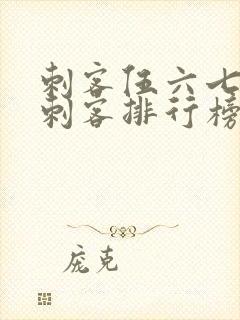 刺客伍六七
刺客排行榜
庞克